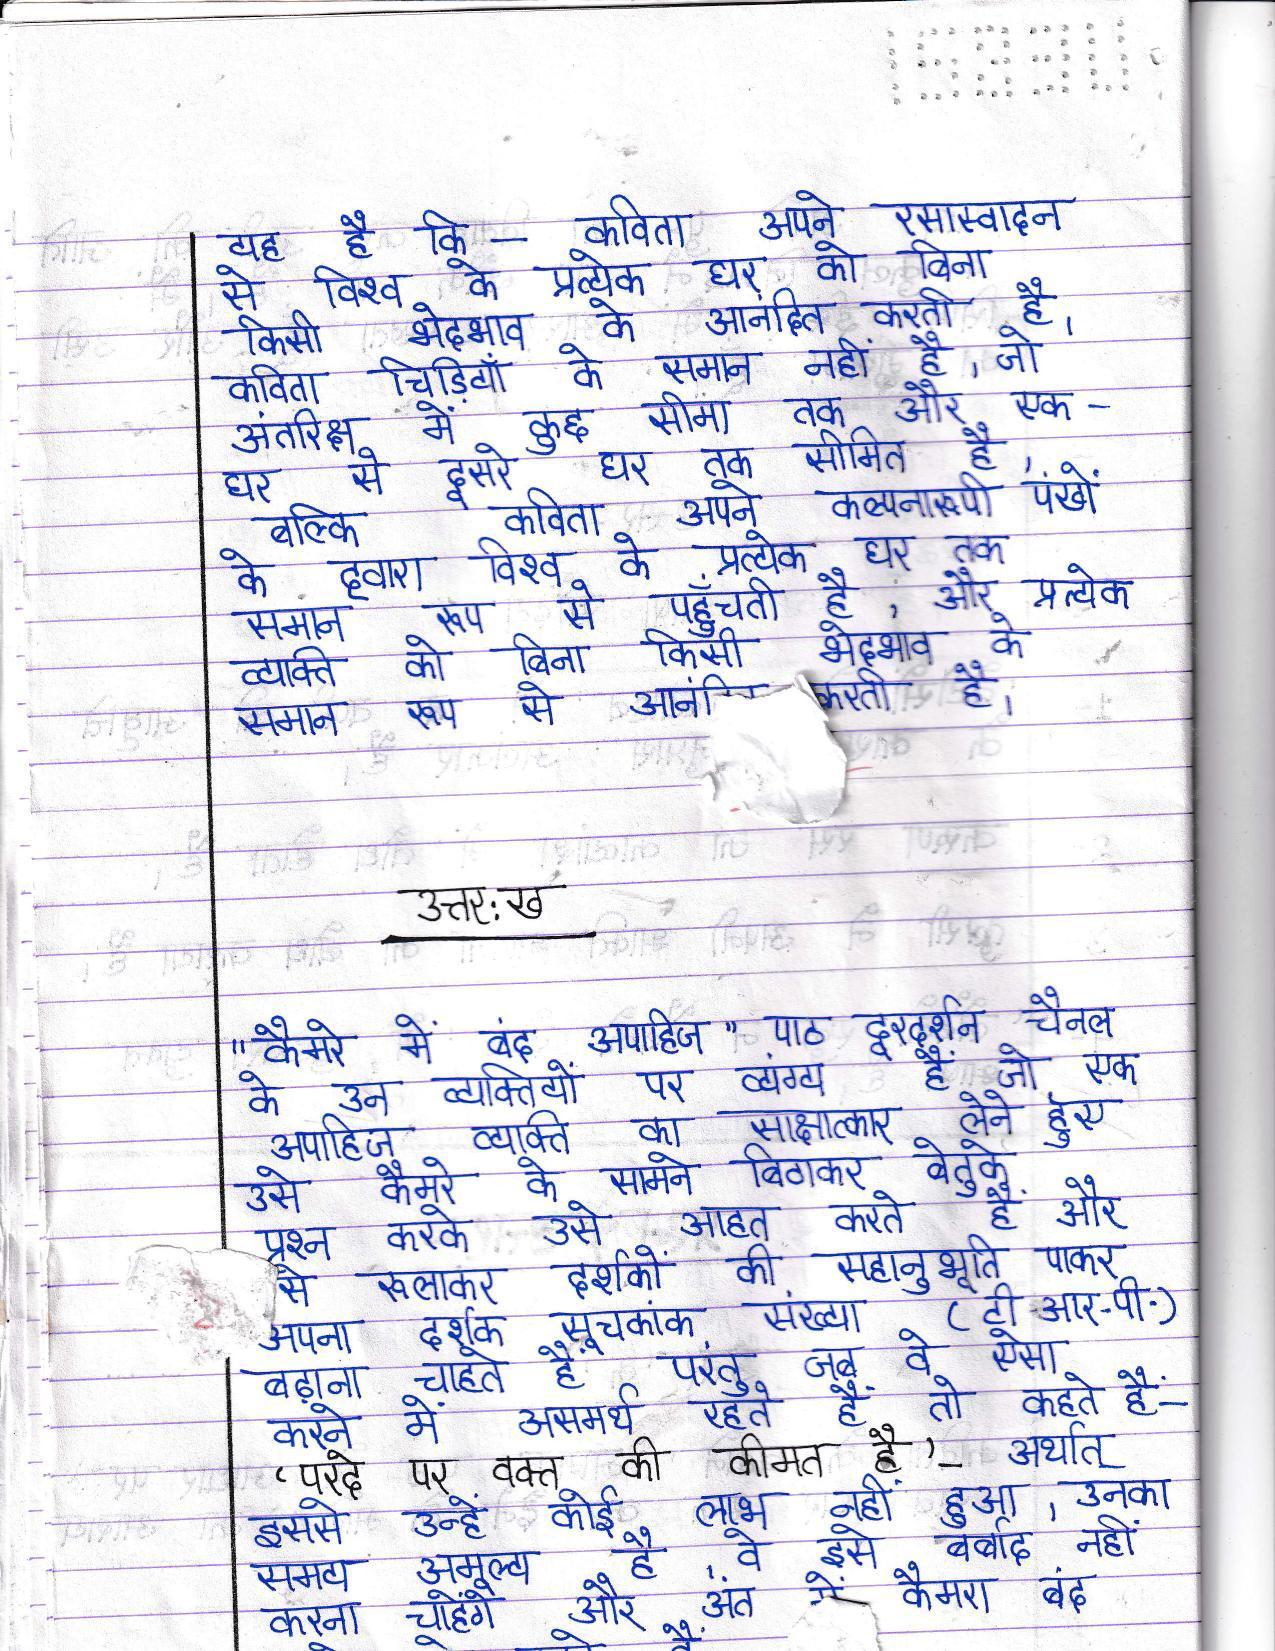 यह है कि - कविता अपने रसास्वादन
से विश्व के प्रत्येक घर को बिना
किसी भेदभाव के आनंदित करती है,
कविता चिड़ियाँ के समान नहीं है, जो
अंतरिक्ष में कुछ सीमा तक और एक -
घर से दूसरे घर तक सीमित है,
बल्कि कविता अपने कल्पनारूपी पंखों
के द्वारा विश्व के प्रत्येक घर तक
समान रूप से पहुँचती है, और प्रत्येक
व्यक्ति को बिना किसी भेदभाव के
समान रूप से करती है,
उत्तर: ख
"कैमरे में बंद अपाहिज" पाठ दूरदर्शन चैनल
के उन व्यक्तियों पर व्यंग्य हैं जो एक
अपाहिज व्यक्ति का साक्षात्कार लेने हुए
उसे कैमरे के सामने बिठाकर बेतुके
प्रश्न करके उसे आहत करते हैं और
से रूलाकर दर्शकों की सहानुभूति पाकर
अपना दर्शक सूचकांक संख्या (टी आर-पी.)
बढ़ाना चाहते हैं परंतु जब वे ऐसा
करने में असमर्थ रहते हैं तो कहते हैं-
'परदे पर वक्त की कीमत है' - अर्थात्
इससे उन्हें कोई लाभ नहीं हुआ, उनका
समय अमूल्य है, वे इसे बर्बाद नहीं
करना चाहेंगे और अंत में कैमरा बंद